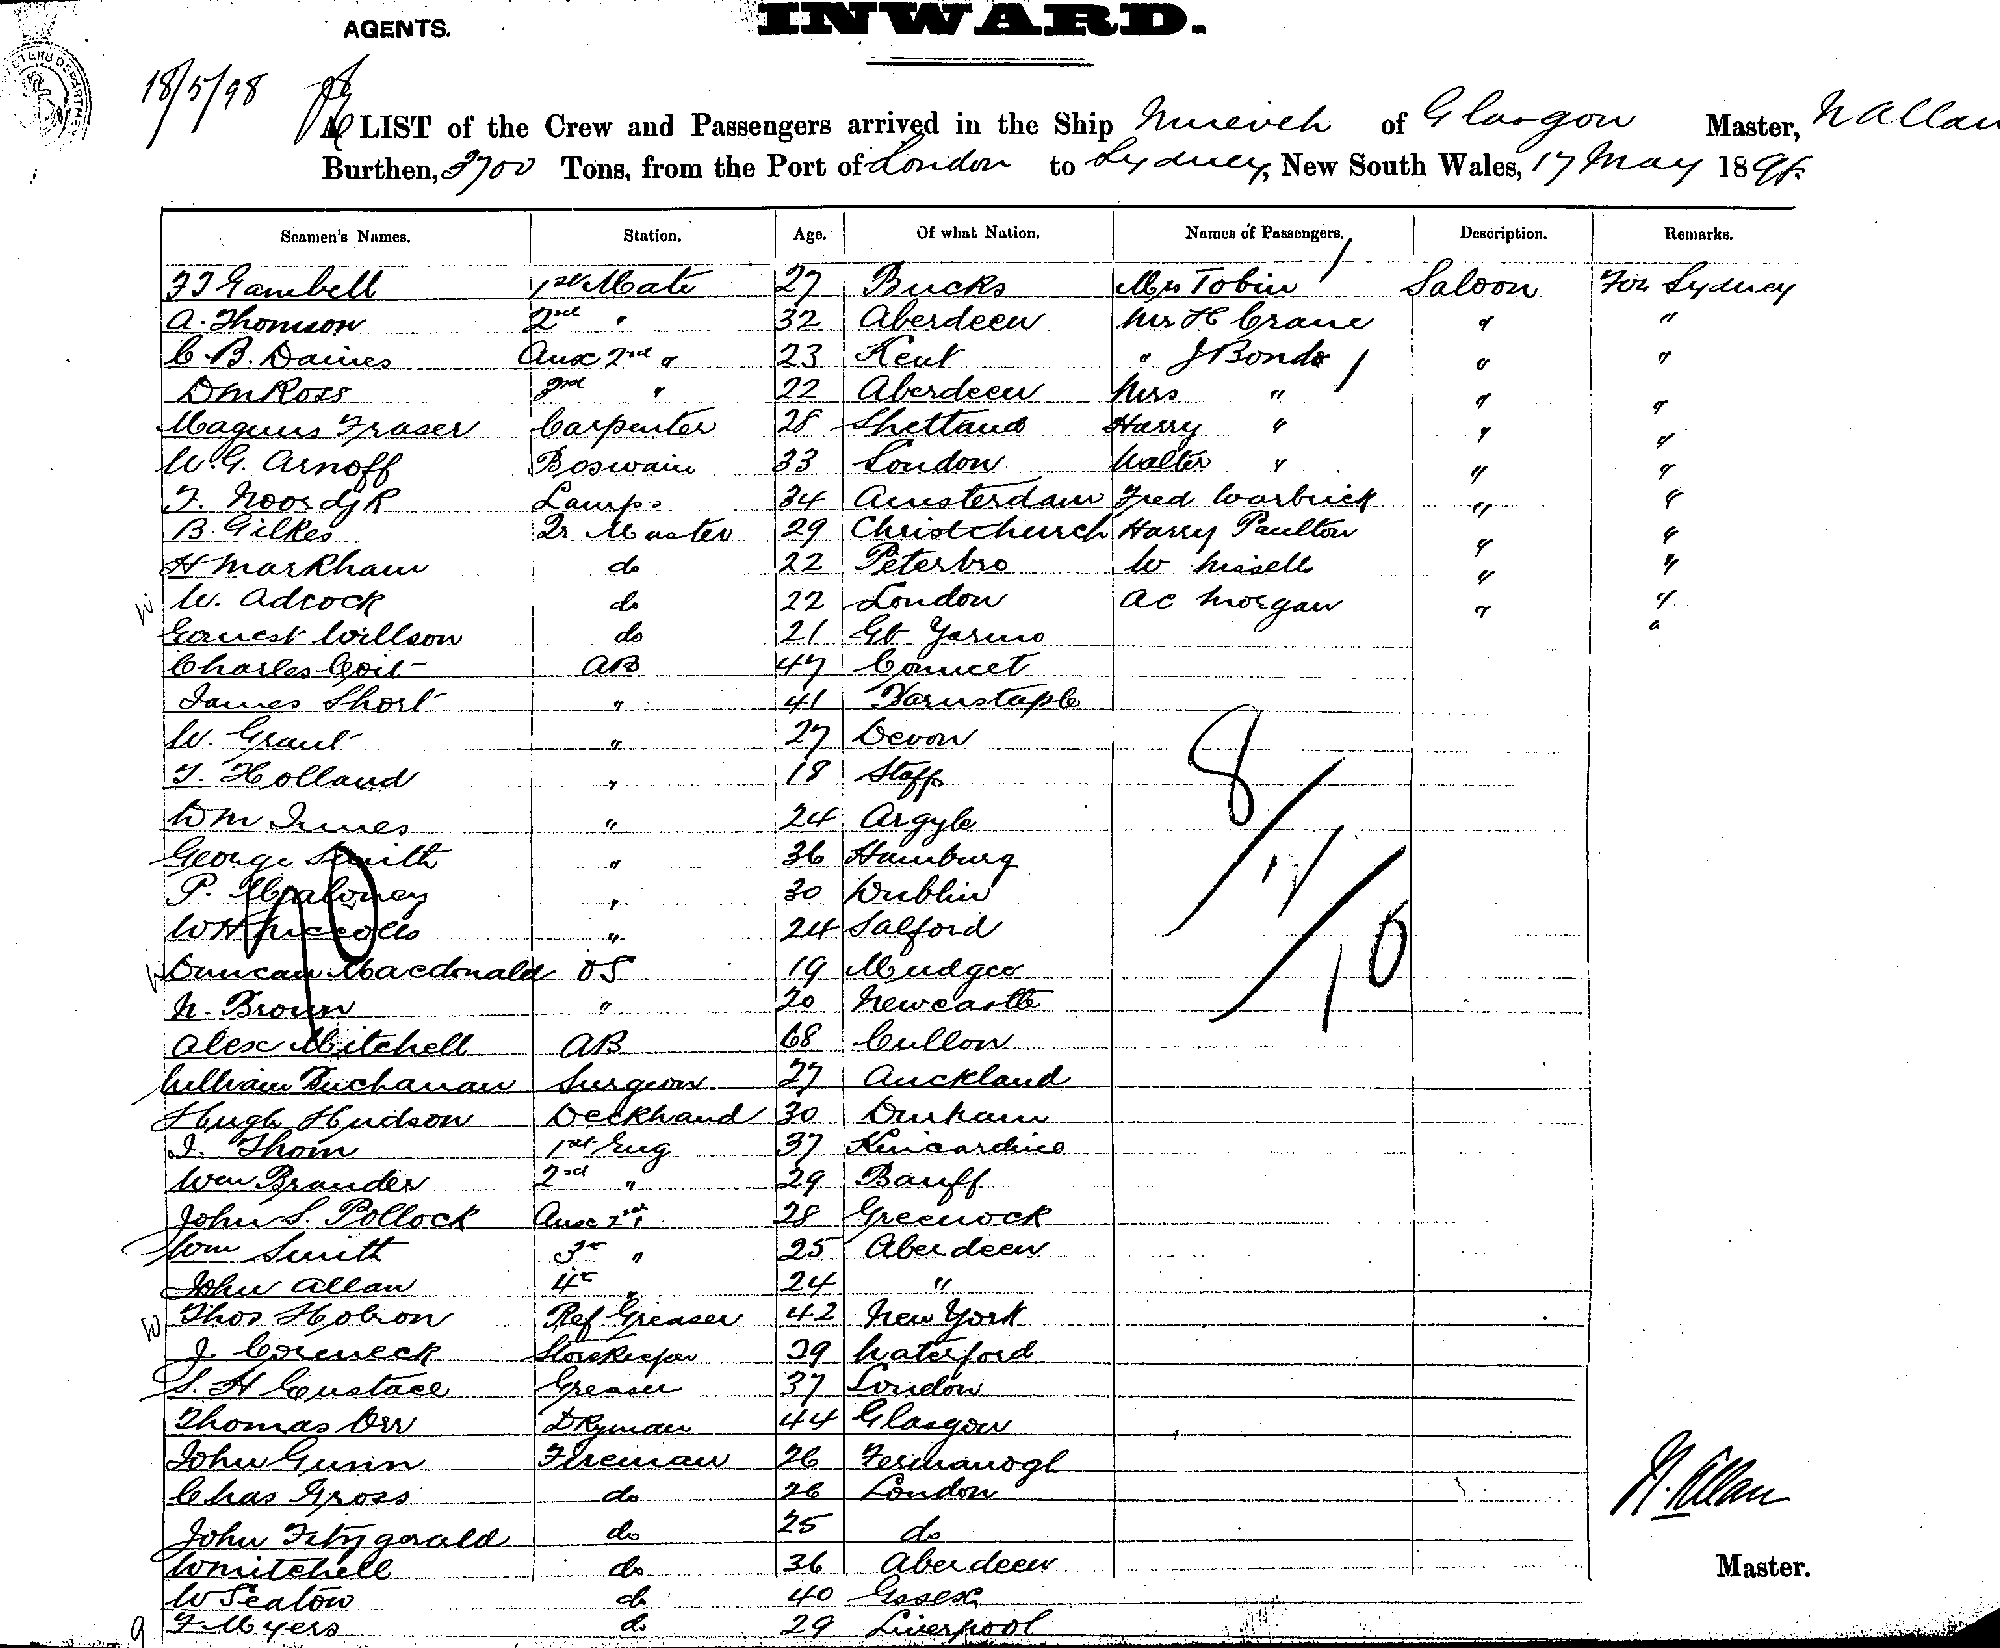 INWARD.
AGENTS.
18/5/98
A LIST of the Crew and Passengers arrived in the Ship Nineveh of Glasgow Master, N Allan
Burthen, 2700 Tons, from the Port of London to Sydney, New South Wales, 17 May 1898
Seamen's Names. Station. Age. Of what Nation. Names of Passengers. Description. Remarks.
1st Mate 27 Bucks Mrs Tobin Saloon For Sydney
A. Thomson 2nd " 32 Aberdeen Mr H Crane " "
C. B. Daines Aux 2nd " 23 Kent " J Bonds " "
D M Ross 3rd " 22 Aberdeen Mrs " " "
Magnus Fraser Carpenter 28 Shetland Harry " " "
W. G. Arnoff Boswain 33 London Walter " " "
Lamps 34 Amsterdam Fred Warbrick " "
B. Gilkes Qr Master 29 Christchurch Harry Paulton " "
H Markham do 22 Peterbro W " "
W. Adcock do 22 London A C Morgan " "
Earnest Willson do 21 Gt Yarmo "
Charles AB 47
James Short " 41 Barnstaple
W. Grant " 27 Devon
T. Holland " 18 Staffs
Wm Innes " 24 Argyle
George Smith " 36 Hamburg
P. Maloney " 30 Dublin
W H " 24 Salford
Duncan Macdonald OS 19 Mudgee
N. Brown " 20 Newcastle
Alex Mitchell AB 68 Cullon
William Buchanan Surgeon 27 Auckland
Hugh Hudson Deckhand 30 Durham
J. Thom 1st Eng 37 Kincardine
Wm Brander 2nd " 29 Banff
John S. Pollock Aux 2nd " 28 Greenock
Wm Smith 3rd " 25 Aberdeen
John Allan 4th " 24 "
Thos Hobson Ref Greaser 42 New York
J. Storekeeper 39 Waterford
S. H Eustace Greaser 37 London
Thomas Orr Dkyman 44 Glasgow
John Gunn Fireman 26 Fermanogh
Chas Gross do 26 London
John Fitzgerald do 25 do
W Mitchell do 36 Aberdeen
W Seaton do 40 Essex
F Myers do 29 Liverpool
8/11/10
N. Allan
Master.